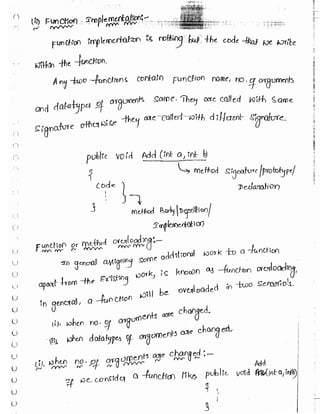 (ii) Function Implementation:-
Function implementation is nothing but the code that we write
within the function.
Any two functions contain function name, no. of arguments
and datatypes of arguments same. They are called with same
signature otherwise they are called with different signature.
public void Add (int a, int b) → method signature/prototype/
{ Declaration
code
}
method Body/Definition/
Implementation
Function or method overloading:-
In general assigning some additional work to a function
apart from the Existing work, is known as function overloading,
in general, a function will be overloaded in two Scenario's.
(i). when no. of arguments are changed.
(ii). when datatypes of arguments are changed.
(i). when no. of arguments are changed:-
If we consider a function like public void Add(int a, int b)
{
}